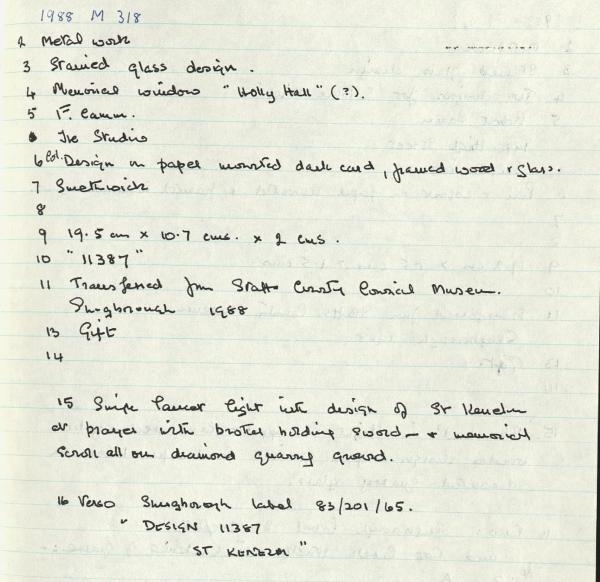 1988 M 318
2 Metal work
3 Stained glass design.
4 Memorial window "Holly Hall" (?).
5 F. Camm.
The Studio
6 Col. Design on paper mounted dark card, framed wood & glass.
7 Smethwick
8
9 19.5 cm x 10.7 cms. x 2 cms.
10 "11387"
11 Transferred from Staffs County Council Museum.
Shugborough 1988
13 Gift
14
15 Single lancet light with design of St Kenelm
at prayer with brother holding sword & memorial
scroll all on diamond quarry ground.
16 Verso Shugborough label 83/201/65.
" DESIGN 11387
ST KENELM "